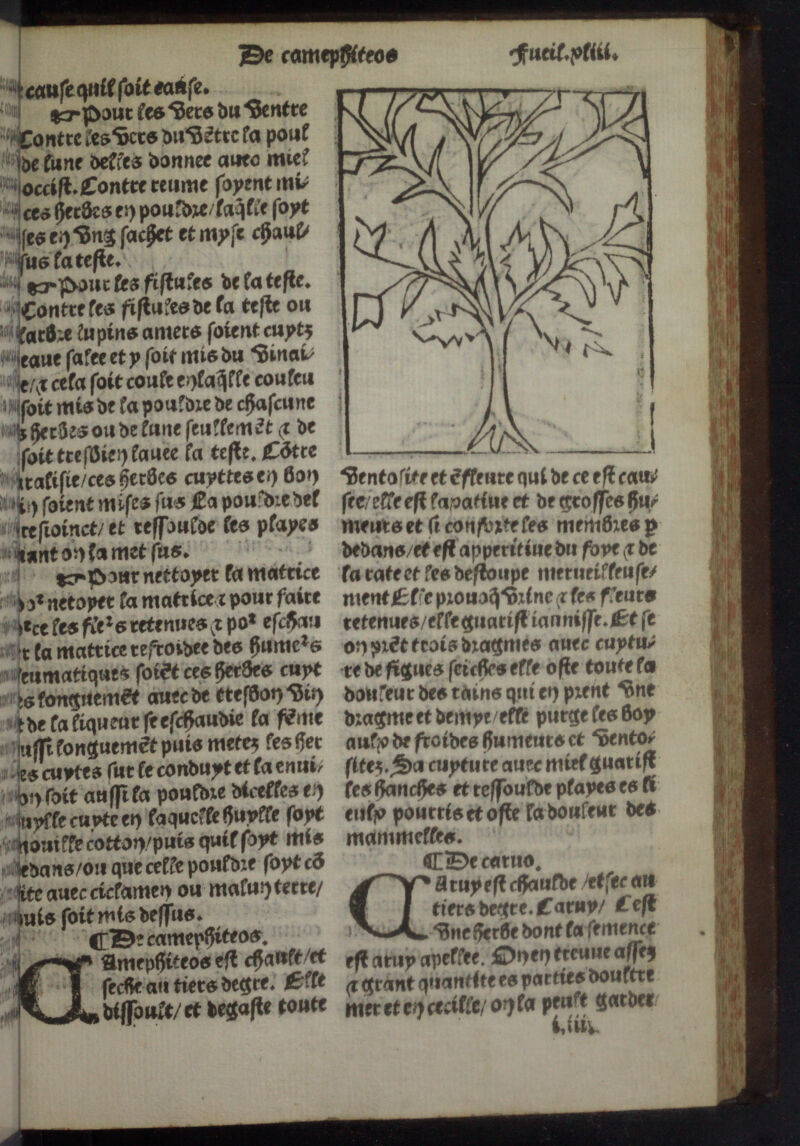 De camephiteos
Fueil.xliii.
cause quil soit cause.
☞ Pour les vers du ventre
Contre les vers du vẽtre la poul
de lune delles donnee auec miel
occist. Contre reume soyent mi⸗
ces herbes en pouldre/laq̃lle soyt
ses en vng sachet et myse chaul⸗
sus la teste.
☞ Pour les fistules de la teste.
Contre les fistules de la teste ou
larbre lupins amers soient cuytz
eaue salee et y soit mis du vinai⸗
e/⁊ cela soit coule en laq̃lle couleu
soit mis de la pouldre de chascune
s herbes ou de lune seullemẽt ⁊ de
soit tresbien lauee la teste. Cõtre
ralisie/ces herbes cuyttes en bon
in soient mises sus La pouldre del
restoinct/et ressoulde les playes
tant on la met sus.
☞ Pour nettoyer la matrice
poꝛ netoyer la matrice ⁊ pour faire
ce les fleꝛs retenues ⁊ poꝛ eschau
r la matrice refroidee des humeꝛs
leumatiques soiẽt ces herbes cuyt
s longuemẽt auec de tresbon vin
t de la liqueur se eschaudie la fẽme
ussi longuemẽt puis metez les her
es cuytes sur le conduyt et la enui⸗
on soit aussi la pouldre dicelles en
uylle cuyte en laquelle huylle soyt
mouille cotton/puis quil soyt mis
dedans/ou que celle pouldre soyt cõ
ite auec ciclamen ou malun terre/
puis soit mis dessus.
¶ De camephiteos.
CAmephiteos est chault/et
seche au tiers degre. Elle
dissoult/et degaste toute
ventosite et ẽfleure qui de ce est cau⸗
see/elle est lapatiue et de grosses hu⸗
meurs et si conforte les membres p
dedans/et est apperitiue du foye ⁊ de
la rate et les destoupe merueilleuse⸗
ment Elle prouoq̃ vrine ⁊ les fleurs
retenues/elle guarist iaunisse. Et se
on prẽt trois dragmes auec cuytu⸗
re de figues seiches elle oste toute la
douleur des rains qui en prent vne
dragme et demye/elle purge les boy
aulx de froides humeurs et vento⸗
sitez. Sa cuyture auec miel guarist
les hanches et ressoulde playes es li
eulx pourris et oste la douleur des
mammelles.
¶ De caruo.
CAruy est chaulde/et sec au
tiers degre. Caruy/Cest
vne herbe dont la semence
est aruy apellee. On en treuue assez
⁊ grant quantite es parties doultre
mer et en cecille/on la peult garder
i.iii.